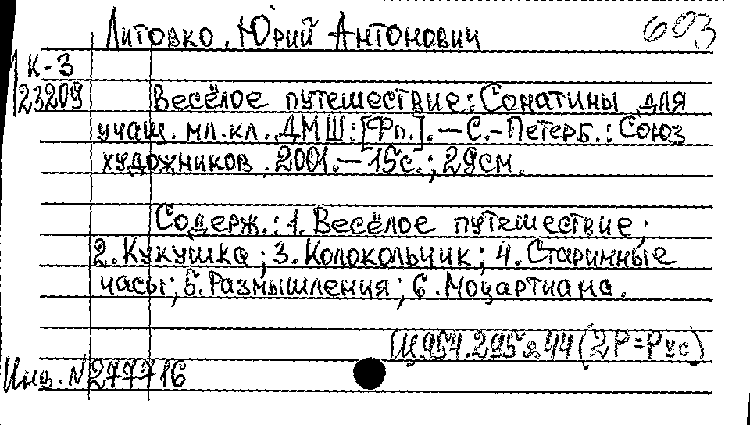 Литовко, Юрий Антонович 693
К-3
23209
Весёлое путешествие: Сонатины для
учащ. мл. кл. ДМШ: [Фп.]. — С.-Петерб.: Союз
художников. 2001. — 15с.; 29см.
Содерж.: 1. Весёлое путешествие;
2. Кукушка; 3. Колокольчик; 4. Старинные
часы; 5. Размышления; 6. Моцартиана.
Щ954.295я44(2Р=Рус)
Инв. № 277716